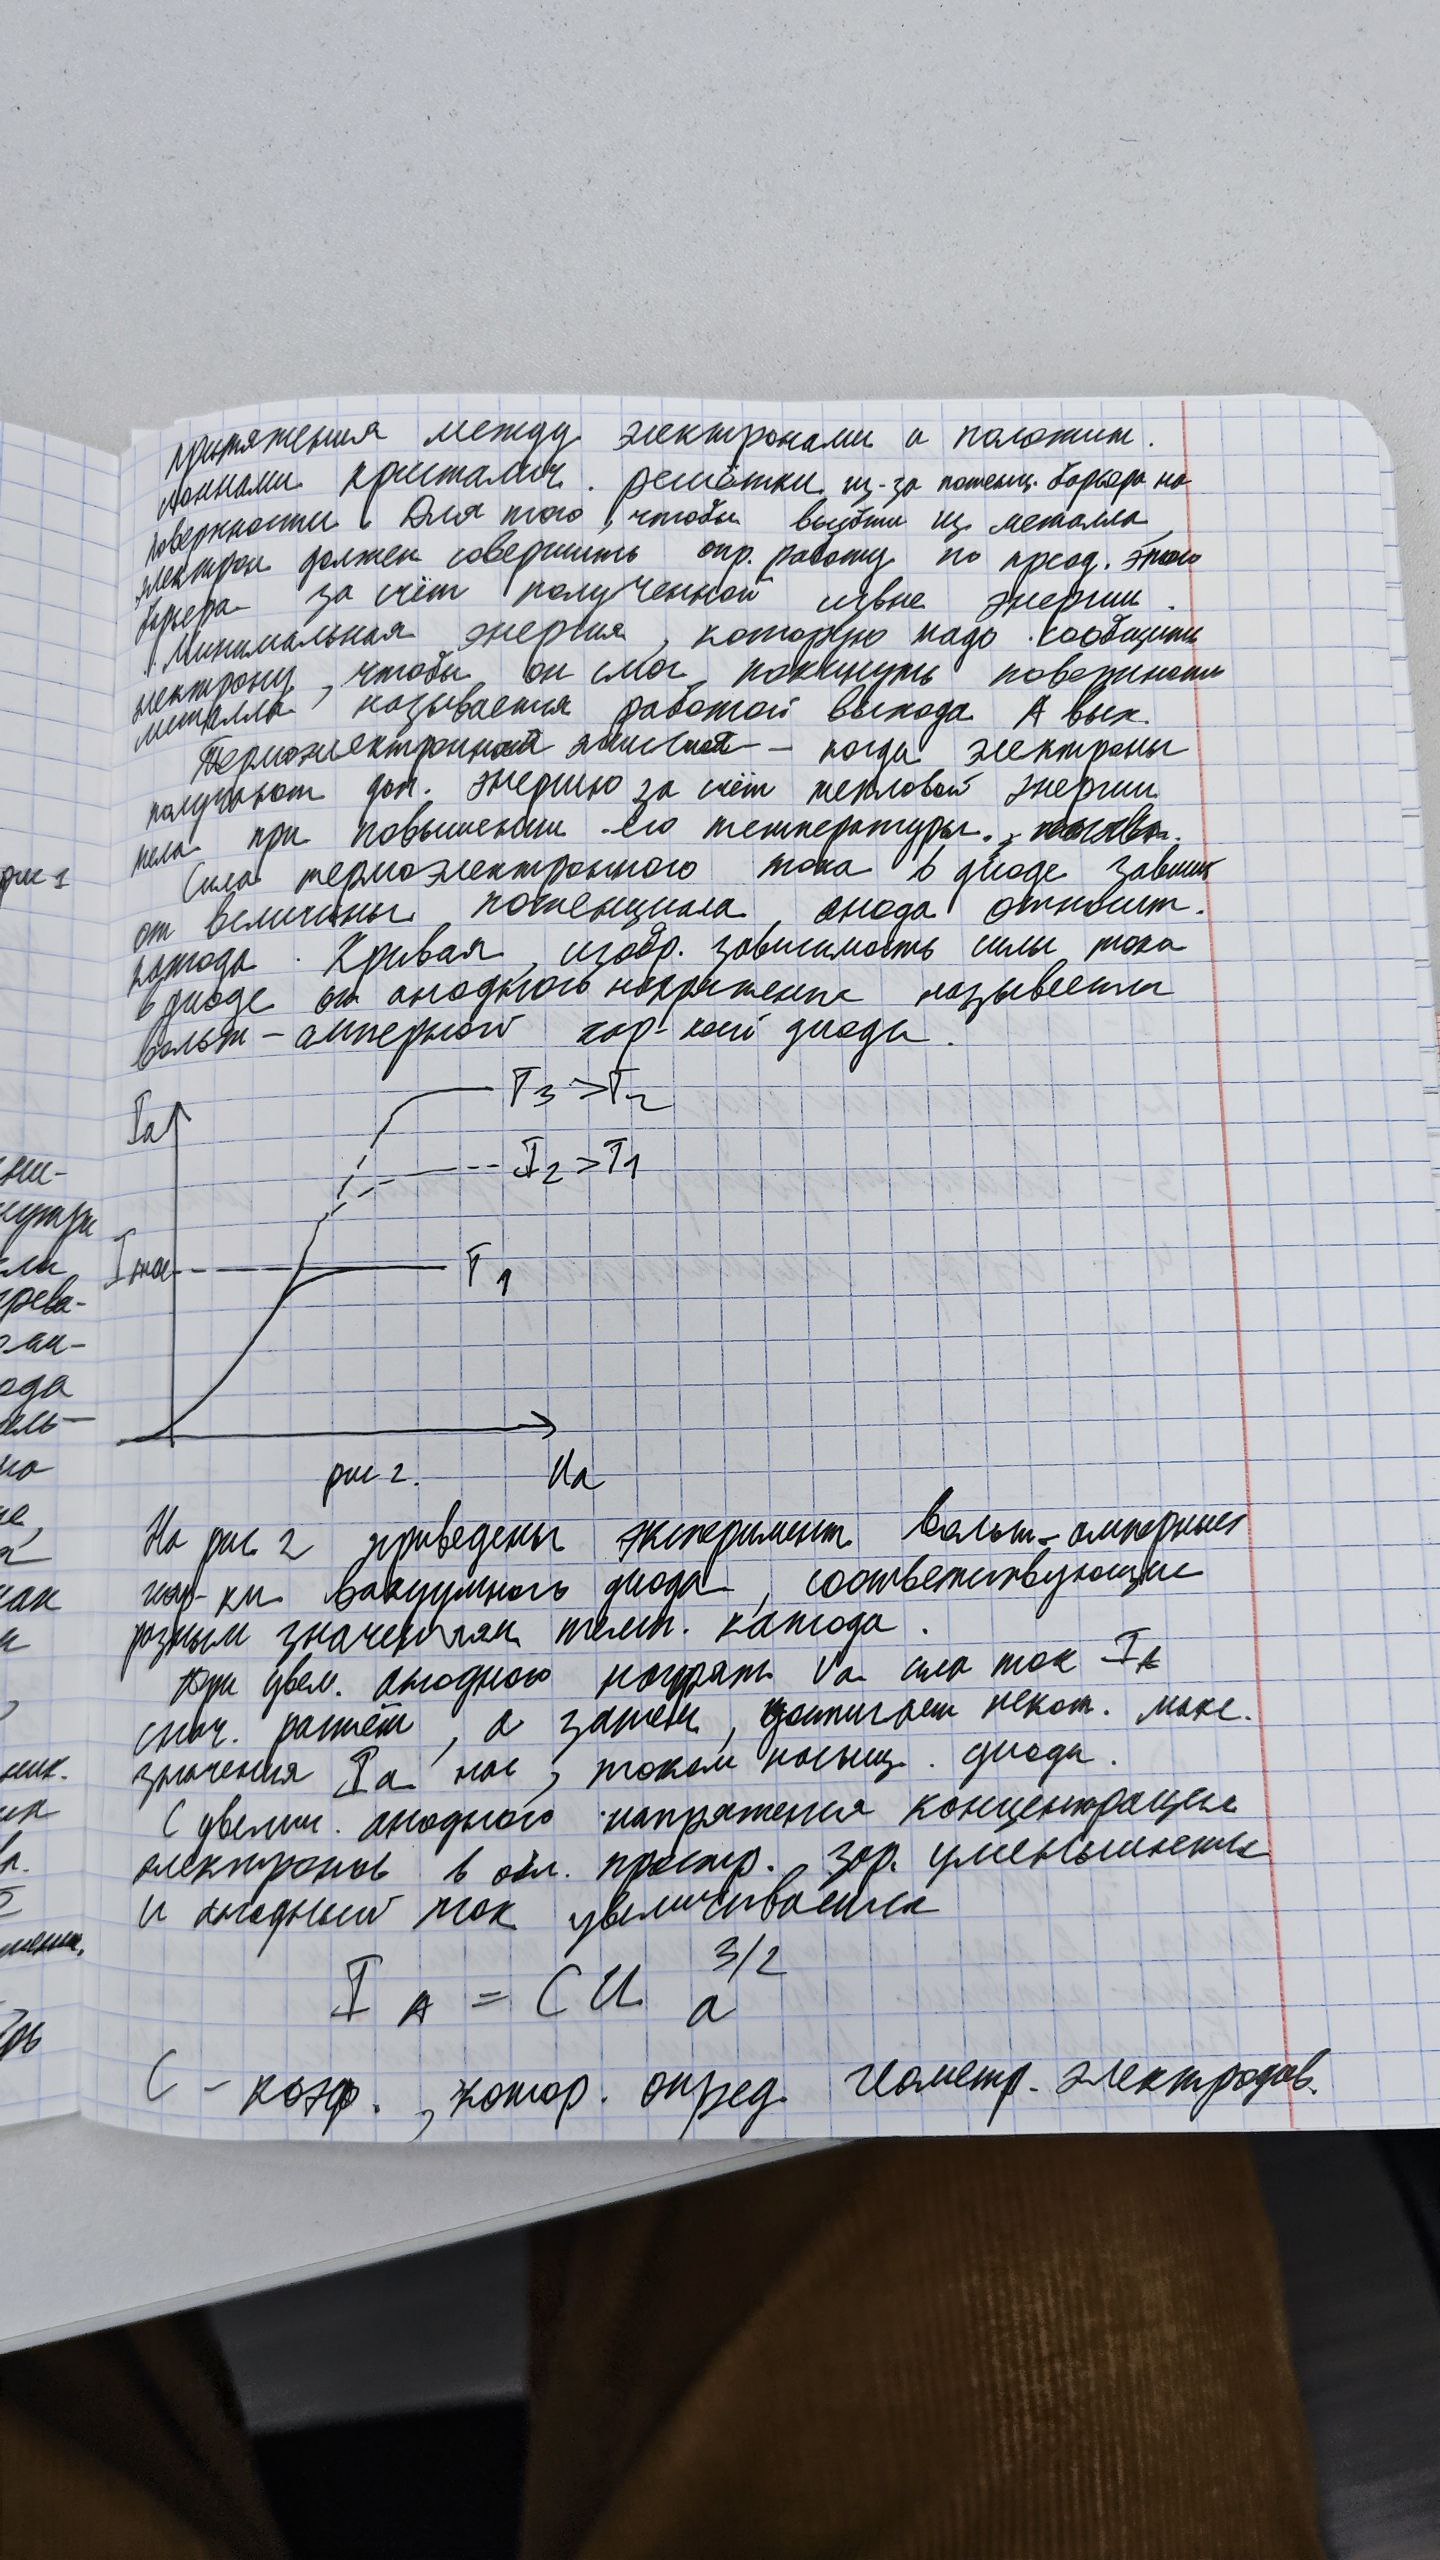 притяжения между электронами и положит.
ионнами кристалич. решётки из-за потенц. барьера на
поверхности. Для того, чтобы выйти из металла,
электрон должен совершить опр. работу по преод. этого
барьера за счёт полученной извне энергии.
Минимальная энергия, которую надо сообщить
электрону, чтобы он смог покинуть поверхность
металла, называется работой выхода A вых.
Термоэлектронной эмиссией - когда электроны
получают доп. энергию за счёт тепловой энергии
тела при повышении его температуры.
Сила термоэлектронного тока в диоде зависит
от величины потенциала анода относит.
катода. Кривая, изобр. зависимость силы тока
в диоде от анодного напряжения называется
вольт-амперной хар-кой диода.
Ia
T3 > T2
T2 > T1
Iнас
T1
рис 2.
Ua
На рис 2 приведены эксперимент. вольт-амперные
хар-ки вакуумного диода, соответствующие
разным значениям темп. катода.
При увел. анодного напряж. Ua сила ток IA
снач. растёт, а затем, достигает некот. макс.
значения Ia нас, током насыщ. диода.
С увелич. анодного напряжения концентрация
электронов в обл. простр. зар. уменьшается
и анодный ток увеличивается
I A = C U a 3/2
C - коэф., котор. опред. геометр. электродов.
рис 1